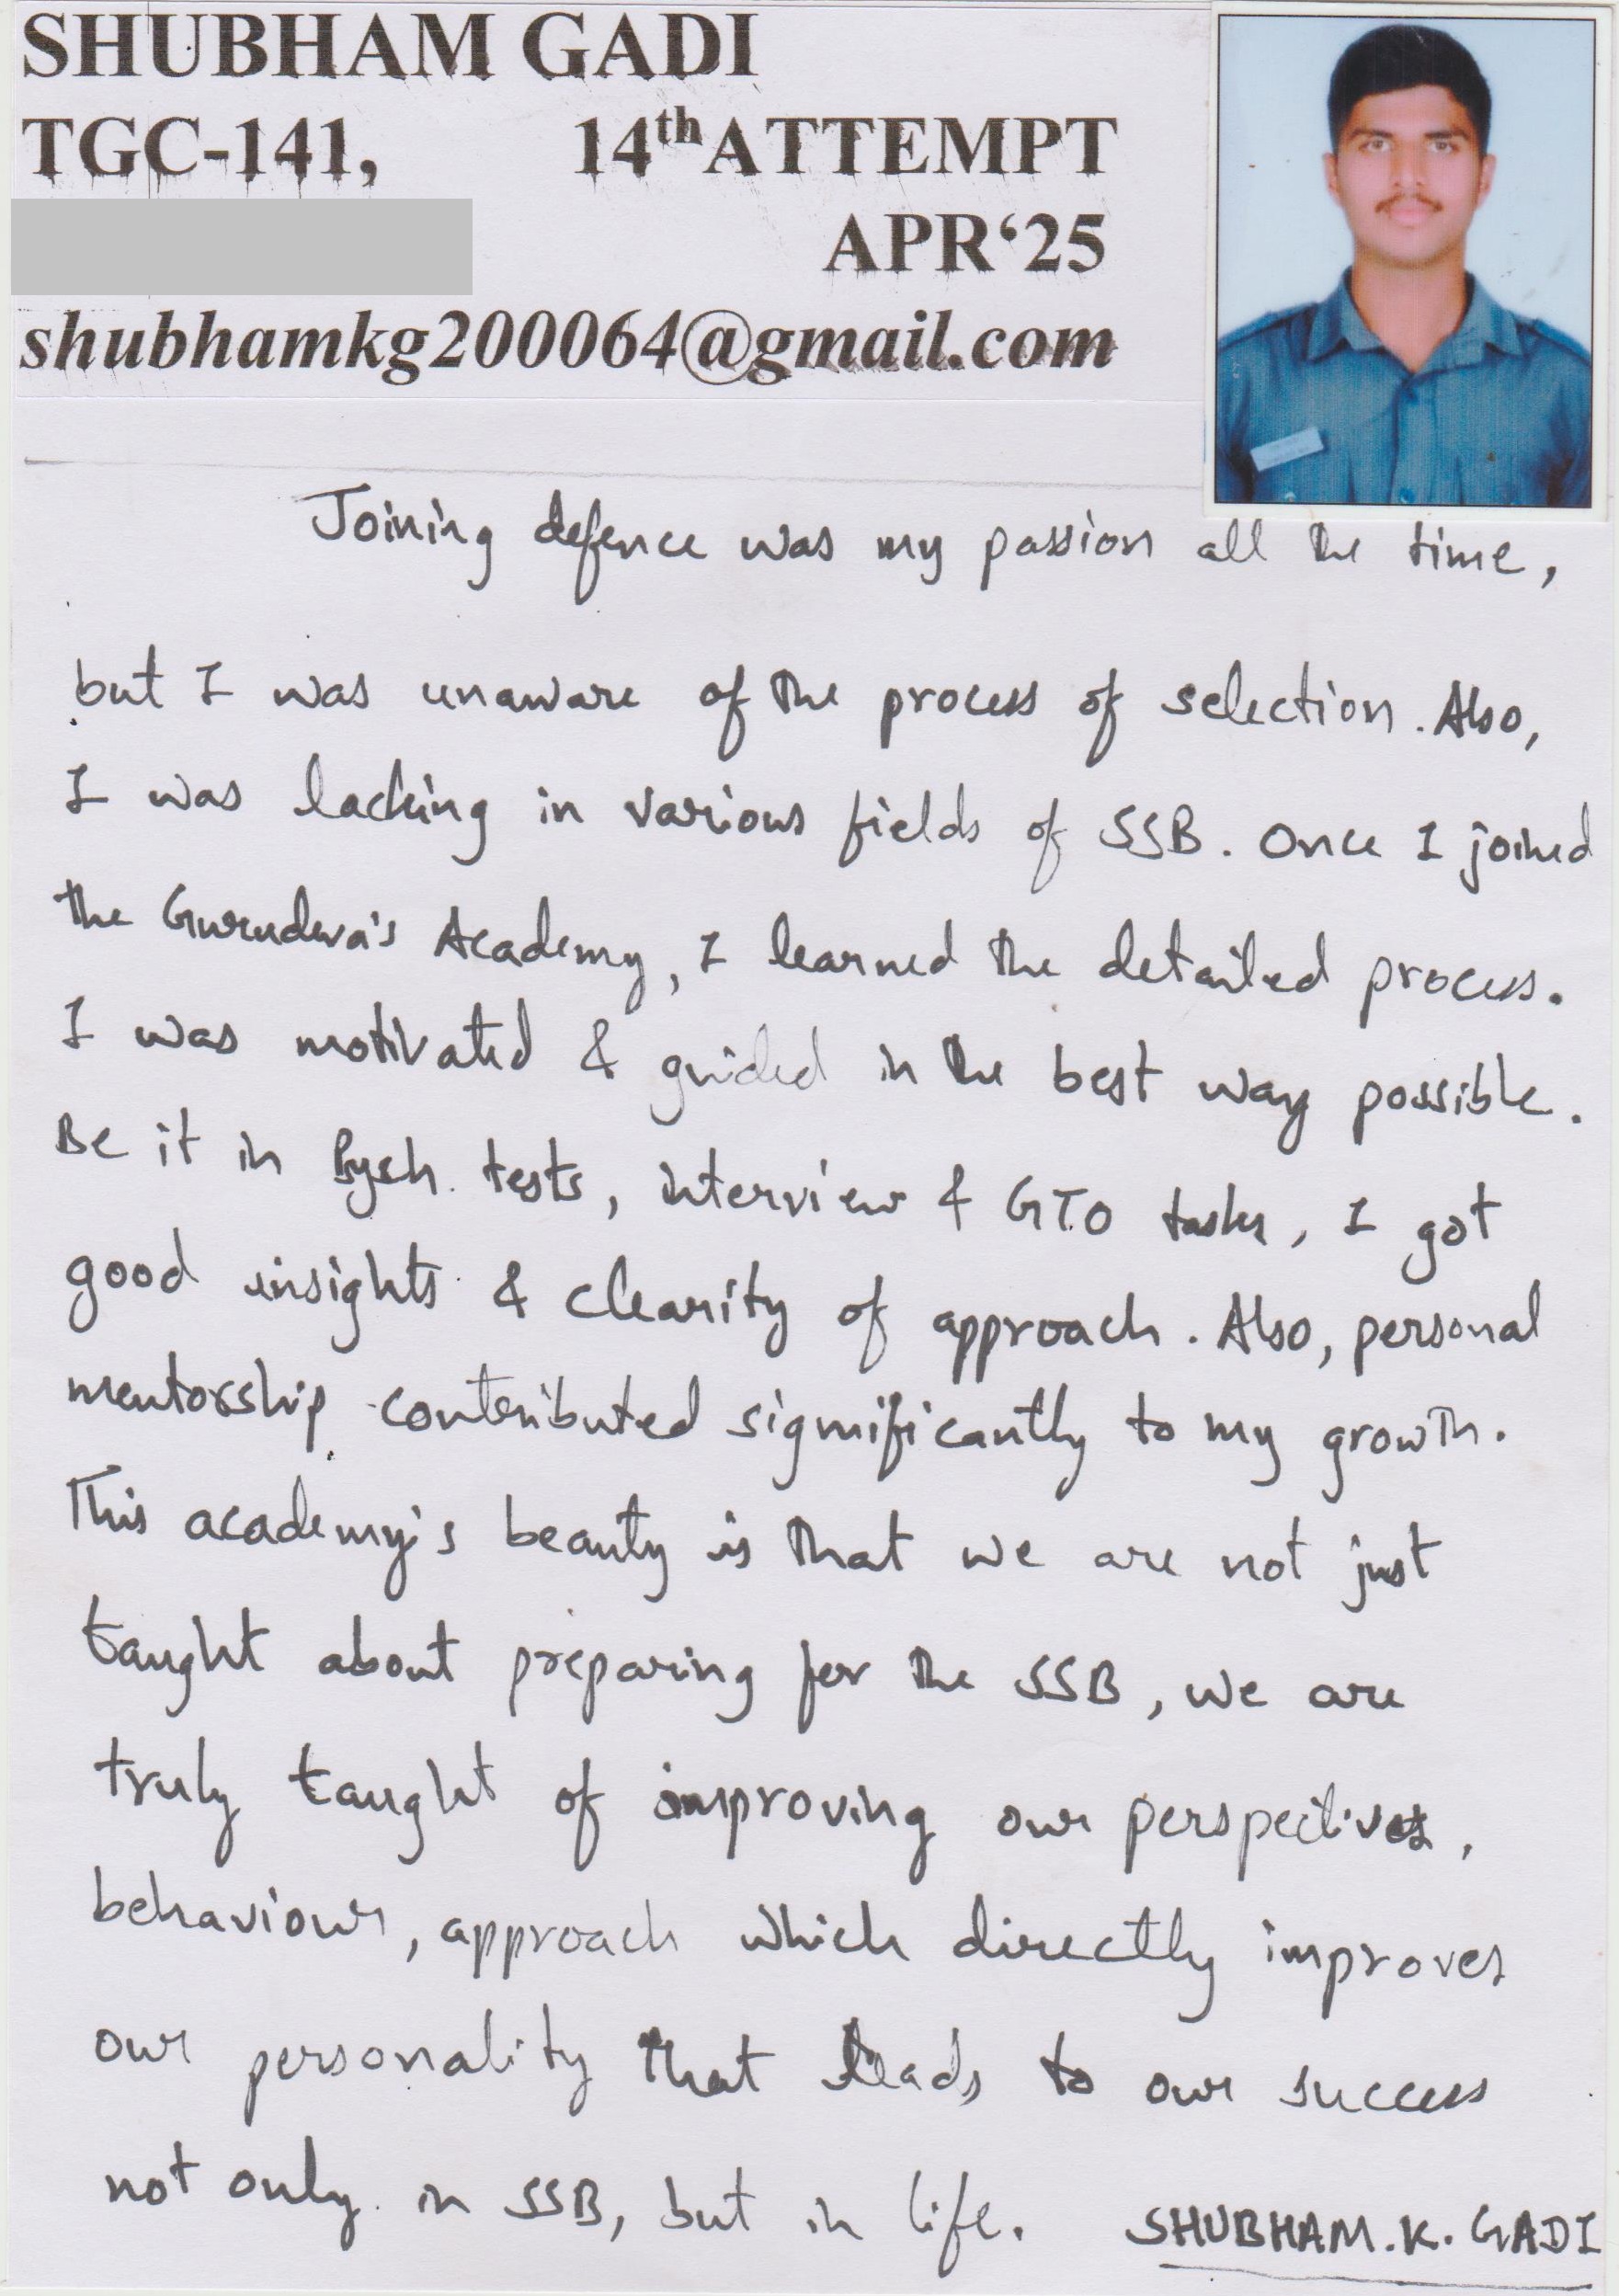 SHUBHAM GADI
TGC-141, 14th ATTEMPT
APR‘25
shubhamkg200064@gmail.com
Joining defence was my passion all the time,
but I was unaware of the process of selection. Also,
I was lacking in various fields of SSB. Once I joined
the Gurudeva's Academy, I learned the detailed process.
I was motivated & guided in the best way possible.
Be it in Pysch. tests, interview & GTO tasks, I got
good insights & clearity of approach. Also, personal
mentorship contributed significantly to my growth.
This academy's beauty is that we are not just
taught about preparing for the SSB, we are
truly taught of improving our perspectives,
behaviour, approach which directly improves
our personality that leads to our success
not only in SSB, but in life. SHUBHAM.K.GADI